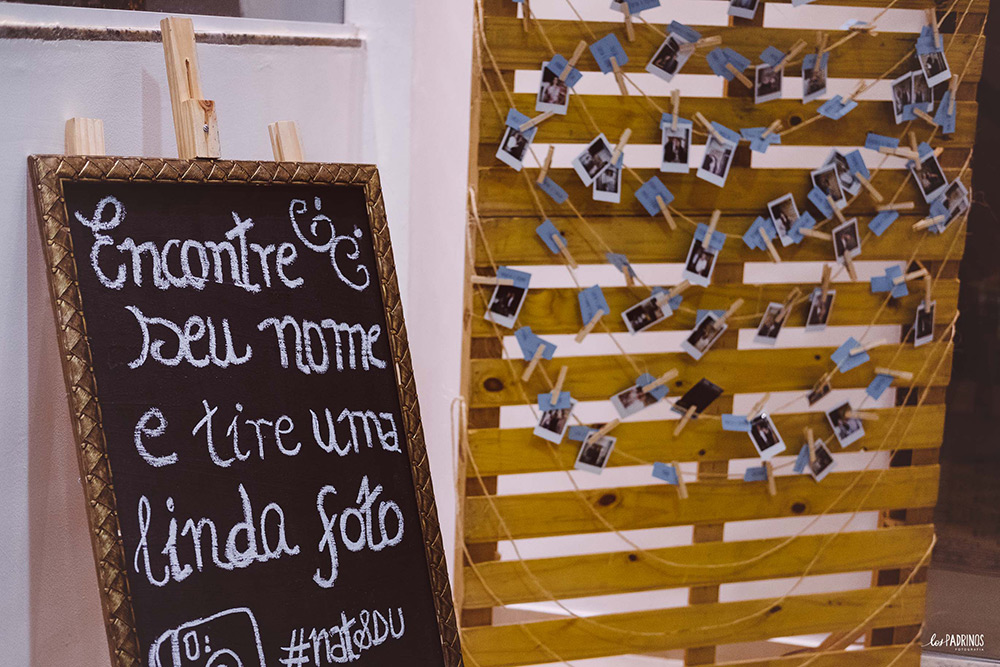 Encontre
seu nome
e tire uma
linda foto
#nat&DU
los PADRINOS
FOTOGRAFIA